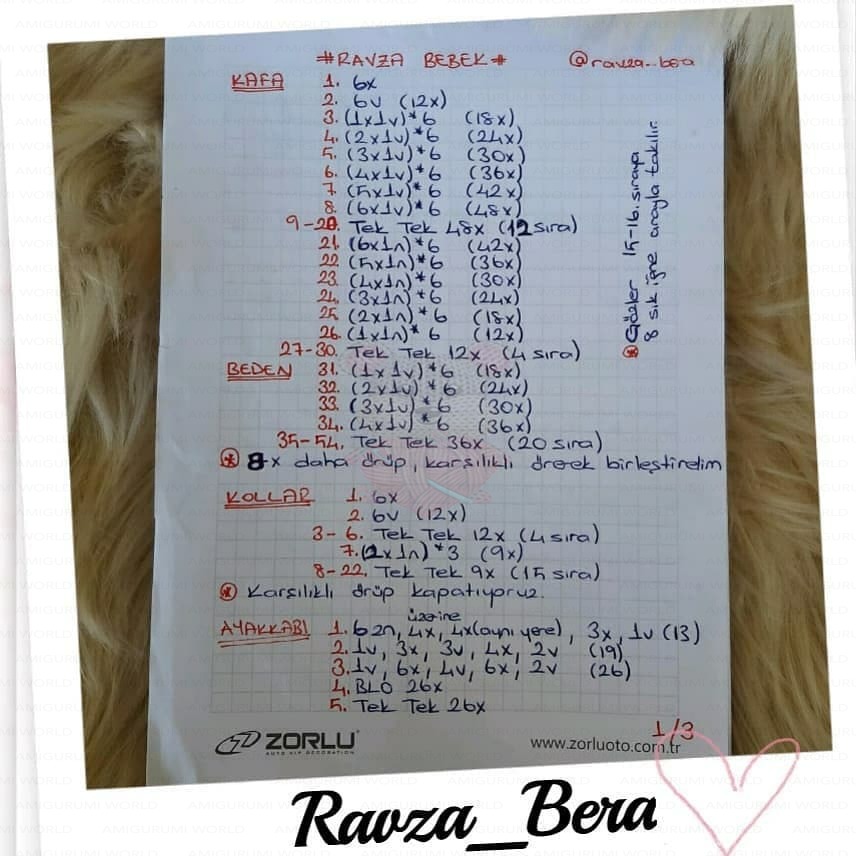 #RAVZA BEBEK# @ravza..bera
KAFA 1. 6x
2. 6v (12x)
3. (1x1v)*6 (18x)
4. (2x1v)*6 (24x)
5. (3x1v)*6 (30x)
6. (4x1v)*6 (36x)
7. (5x1v)*6 (42x)
8. (6x1v)*6 (48x)
9-20. Tek Tek 48x (12 sıra)
21. (6x1n)*6 (42x)
22. (5x1n)*6 (36x)
23. (4x1n)*6 (30x)
24. (3x1n)*6 (24x)
25. (2x1n)*6 (18x)
26. (1x1n)*6 (12x)
27-30. Tek Tek 12x (4 sıra)
⊛ Gözler 15-16. sıraya
8 sık iğne arayla takılır.
BEDEN 31. (1x1v)*6 (18x)
32. (2x1v)*6 (24x)
33. (3x1v)*6 (30x)
34. (4x1v)*6 (36x)
35-54. Tek Tek 36x (20 sıra)
⊛ 8x daha örüp, karşılıklı örerek birleştirelim
KOLLAR 1. 6x
2. 6v (12x)
3-6. Tek Tek 12x (4 sıra)
7. (2x1n)*3 (9x)
8-22. Tek Tek 9x (15 sıra)
⊛ Karşılıklı örüp kapatıyoruz.
üzerine
AYAKKABI 1. 6zn, 4x, 4x(aynı yere), 3x, 1v (13)
2. 1v, 3x, 3v, 4x, 2v (19)
3. 1v, 6x, 4v, 6x, 2v (26)
4. BLO 26x
5. Tek Tek 26x
1/3
ZORLU
AUTO VIP DECORATION
www.zorluoto.com.tr
Ravza_Bera
AMIGURUMI WORLD